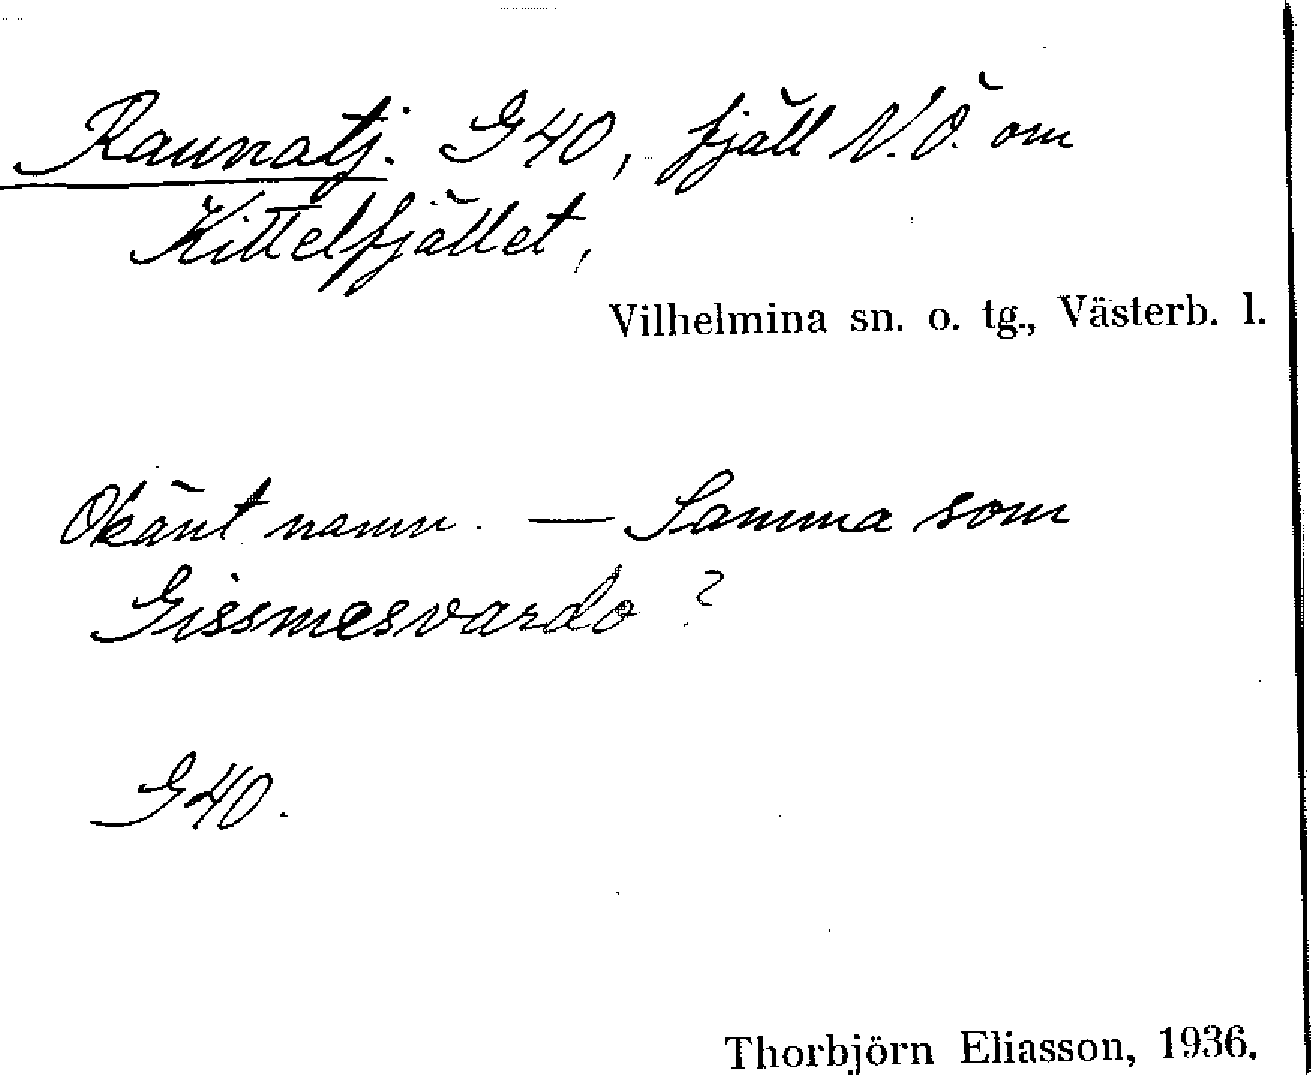 Raunatj. G40, fjäll N.Ö. om
Kittelfjället,
Vilhelmina sn. o. tg., Västerb. l.
Okänt namn. — Samma som
Gissmesvardo?
G40.
Thorbjörn Eliasson, 1936.